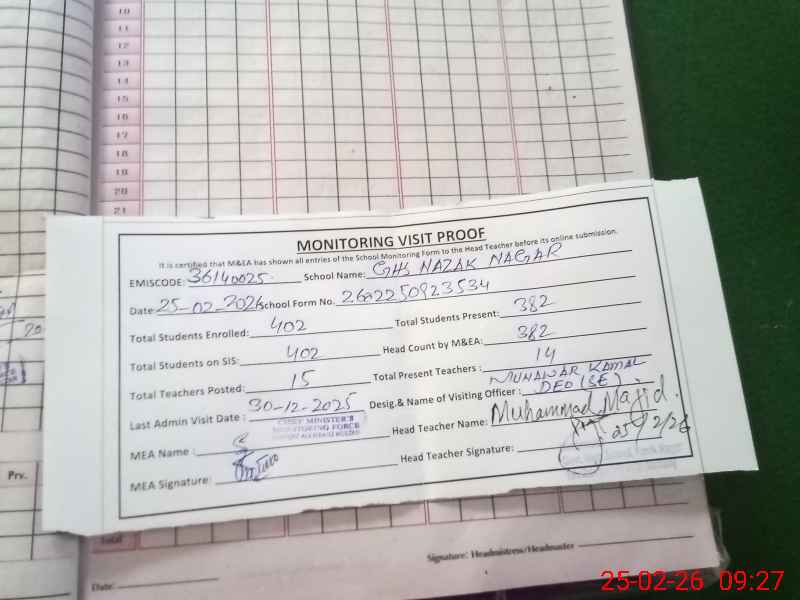 10
11
12
13
14
15
16
17
18
19
20
21
MONITORING VISIT PROOF
It is certified that M&EA has shown all entries of the School Monitoring Form to the Head Teacher before its online submission.
EMISCODE: 36140025. School Name: GHS NAZAK NAGAR
Date: 25-02-2026 School Form No. 26a2250923534
Total Students Enrolled: 402 Total Students Present: 382
Total Students on SIS: 402 Head Count by M&EA: 382
Total Teachers Posted: 15 Total Present Teachers : 14
Last Admin Visit Date : 30-12-2025 Desig.& Name of Visiting Officer : MUNAWAR KAMAL DEO (SE)
CHIEF MINISTER'S
MONITORING FORCE
MEA Name : Head Teacher Name: Muhammad Majid.
MEA Signature: Head Teacher Signature: 25/2/26
20
Prv.
Total
Signature: Headmistress/Headmaster
Date:
25-02-26 09:27